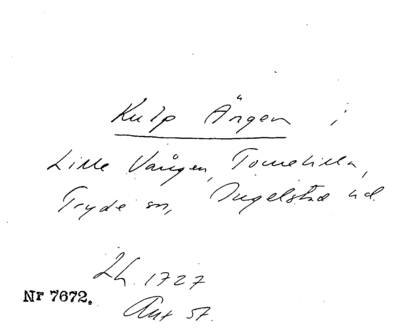 Kulp Ängen i
Lille Vången, Tomelilla,
Tryde sn, Ingelstad hd.
Lh. 1727
Nr 7672.
Ant 57.